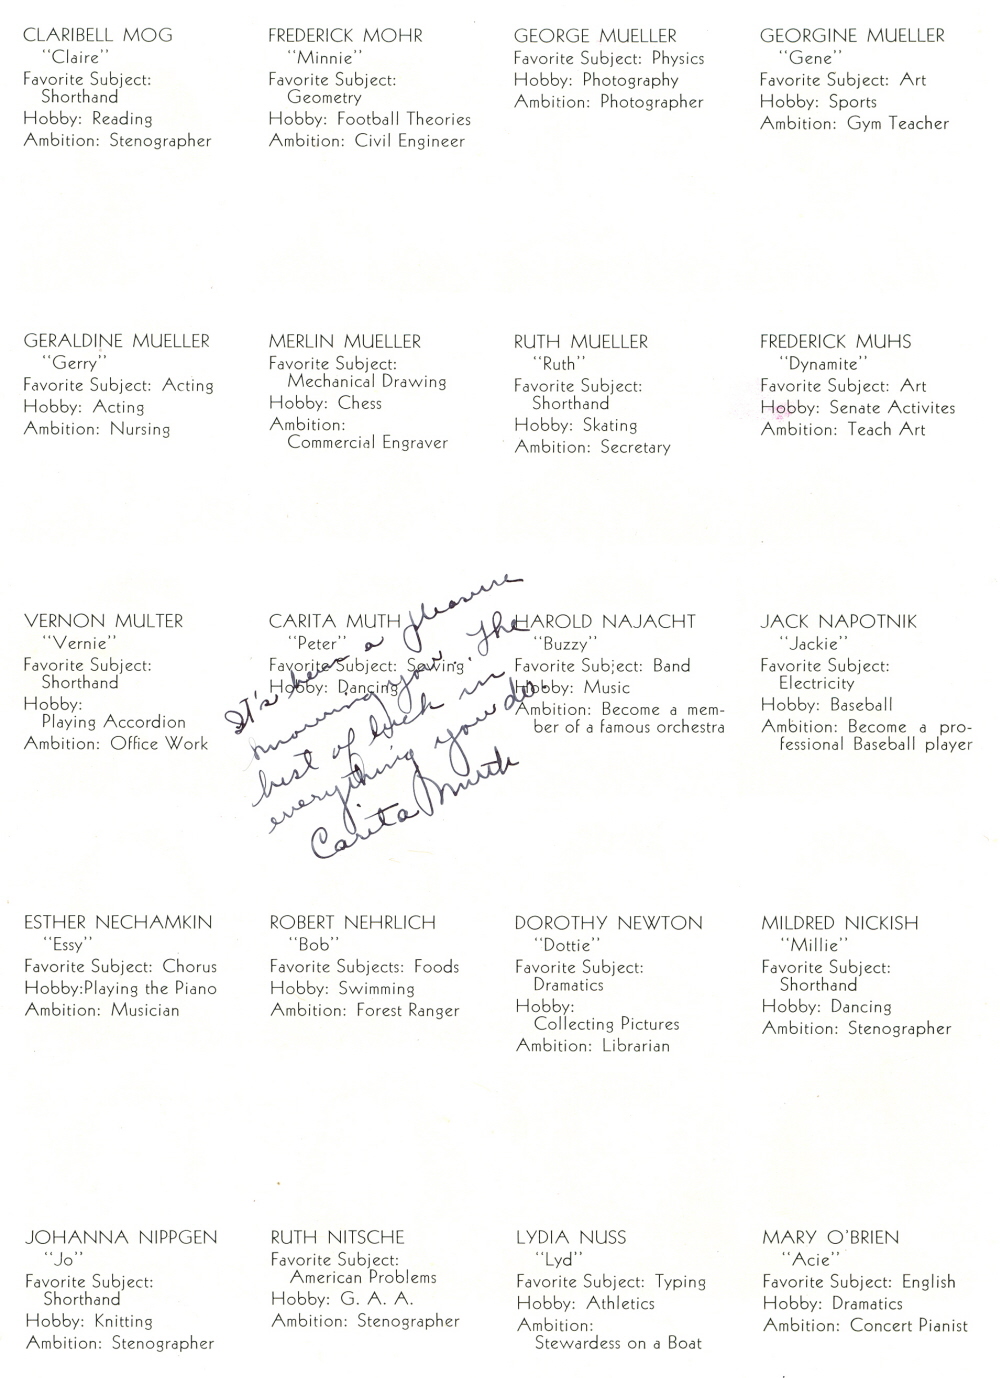 CLARIBELL MOG
"Claire"
Favorite Subject:
Shorthand
Hobby: Reading
Ambition: Stenographer
FREDERICK MOHR
"Minnie"
Favorite Subject:
Geometry
Hobby: Football Theories
Ambition: Civil Engineer
GEORGE MUELLER
Favorite Subject: Physics
Hobby: Photography
Ambition: Photographer
GEORGINE MUELLER
"Gene"
Favorite Subject: Art
Hobby: Sports
Ambition: Gym Teacher
GERALDINE MUELLER
"Gerry"
Favorite Subject: Acting
Hobby: Acting
Ambition: Nursing
MERLIN MUELLER
Favorite Subject:
Mechanical Drawing
Hobby: Chess
Ambition:
Commercial Engraver
RUTH MUELLER
"Ruth"
Favorite Subject:
Shorthand
Hobby: Skating
Ambition: Secretary
FREDERICK MUHS
"Dynamite"
Favorite Subject: Art
Hobby: Senate Activites
Ambition: Teach Art
VERNON MULTER
"Vernie"
Favorite Subject:
Shorthand
Hobby:
Playing Accordion
Ambition: Office Work
CARITA MUTH
"Peter"
Favorite Subject: Sewing
Hobby: Dancing
It's been a pleasure
knowing you. The
best of luck in
everything you do.
Carita Muth
HAROLD NAJACHT
"Buzzy"
Favorite Subject: Band
Hobby: Music
Ambition: Become a mem-
ber of a famous orchestra
JACK NAPOTNIK
"Jackie"
Favorite Subject:
Electricity
Hobby: Baseball
Ambition: Become a pro-
fessional Baseball player
ESTHER NECHAMKIN
"Essy"
Favorite Subject: Chorus
Hobby:Playing the Piano
Ambition: Musician
ROBERT NEHRLICH
"Bob"
Favorite Subjects: Foods
Hobby: Swimming
Ambition: Forest Ranger
DOROTHY NEWTON
"Dottie"
Favorite Subject:
Dramatics
Hobby:
Collecting Pictures
Ambition: Librarian
MILDRED NICKISH
"Millie"
Favorite Subject:
Shorthand
Hobby: Dancing
Ambition: Stenographer
JOHANNA NIPPGEN
"Jo"
Favorite Subject:
Shorthand
Hobby: Knitting
Ambition: Stenographer
RUTH NITSCHE
Favorite Subject:
American Problems
Hobby: G. A. A.
Ambition: Stenographer
LYDIA NUSS
"Lyd"
Favorite Subject: Typing
Hobby: Athletics
Ambition:
Stewardess on a Boat
MARY O'BRIEN
"Acie"
Favorite Subject: English
Hobby: Dramatics
Ambition: Concert Pianist